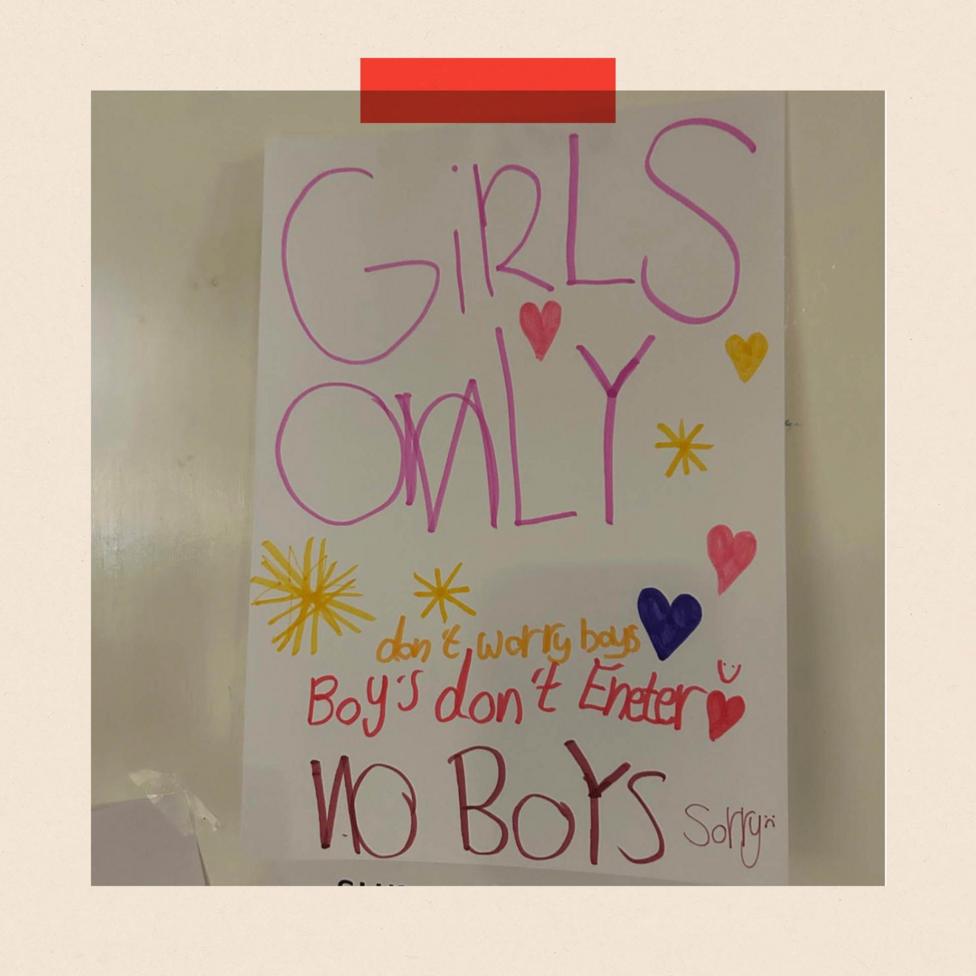 GiRLS
ONLY
don't worry boys
Boy's don't Eneter
NO BOYS
Sorry